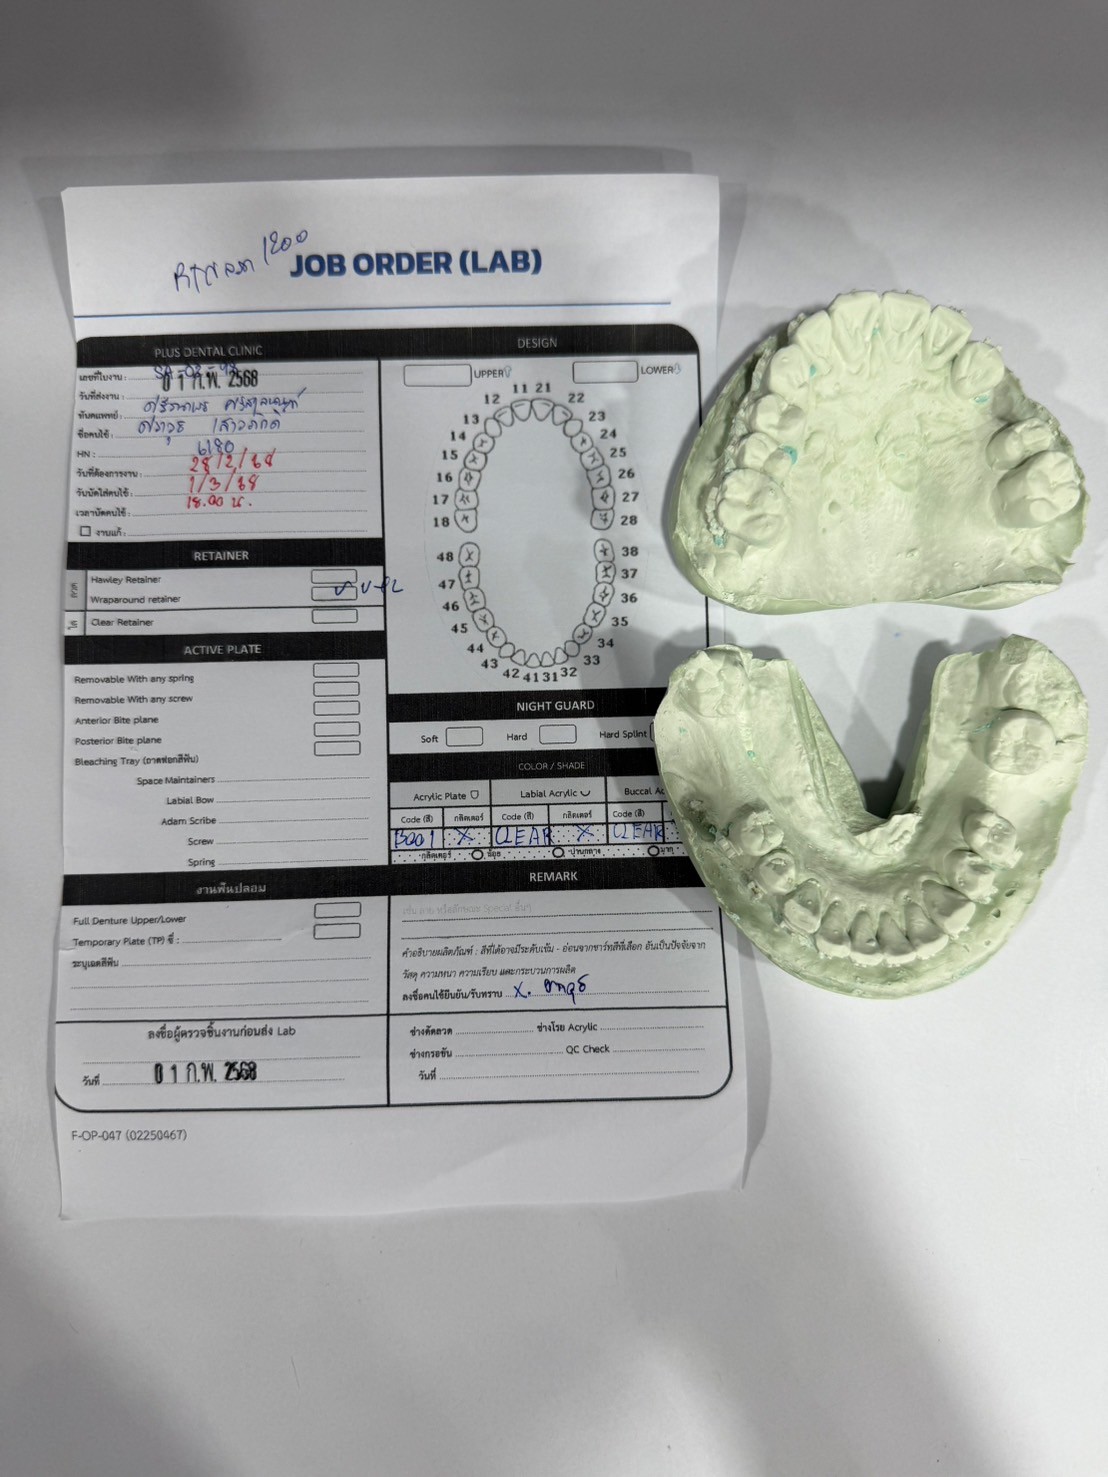 1200
JOB ORDER (LAB)
PLUS DENTAL CLINIC
เลขที่ใบงาน :
วันที่ส่งงาน : 0 1 ก.พ. 2568
ทันตแพทย์ :
ชื่อคนไข้ :
HN : 6180
วันที่ต้องการงาน : 28/2/68
วันนัดใส่คนไข้ : 1/3/68
เวลานัดคนไข้ : 18.00 น.
งานแก้ :
RETAINER
ลวด
Hawley Retainer
Wraparound retainer
ใส
Clear Retainer
ACTIVE PLATE
Removable With any spring
Removable With any screw
Anterior Bite plane
Posterior Bite plane
Bleaching Tray (ถาดฟอกสีฟัน)
Space Maintainers
Labial Bow
Adam Scribe
Screw
Spring
งานฟันปลอม
Full Denture Upper/Lower
Temporary Plate (TP) ซี่ :
ระบุเฉดสีฟัน
ลงชื่อผู้ตรวจชิ้นงานก่อนส่ง Lab
วันที่ 0 1 ก.พ. 2568
DESIGN
UPPER
LOWER
11 21
12 22
13 23
14 24
15 25
16 26
17 27
18 28
48 38
47 37
46 36
45 35
44 34
43 33
42 41 31 32
NIGHT GUARD
Soft
Hard
Hard Splint
COLOR / SHADE
Acrylic Plate
Labial Acrylic
Buccal Ac
Code (สี) กลิตเตอร์ Code (สี) กลิตเตอร์ Code (สี)
B001 X CLEAR X CLEAR
กลิตเตอร์ น้อย ปานกลาง มาก
REMARK
คำอธิบายผลิตภัณฑ์ : สีที่ได้อาจมีระดับเข้ม - อ่อนจากชาร์ทสีที่เลือก อันเป็นปัจจัยจาก
วัสดุ ความหนา ความเรียบ และกระบวนการผลิต
ลงชื่อคนไข้ยืนยัน/รับทราบ X.
ช่างดัดลวด ช่างโรย Acrylic
ช่างกรอขัด QC Check
วันที่
F-OP-047 (02250467)